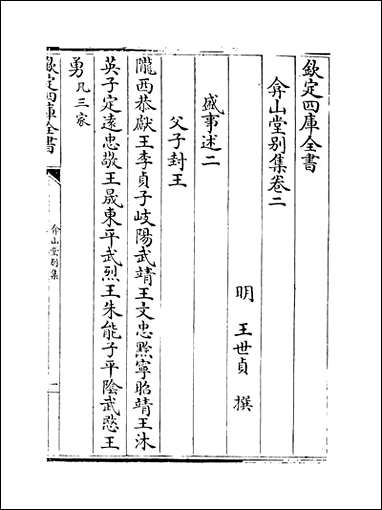 欽定四庫全書
弇山堂别集卷二
明 王世貞 撰
盛事述二
父子封王
隴西恭獻王李貞子岐陽武靖王文忠黔寧昭靖王沐
英子定遠忠敬王晟東平武烈王朱能子平陰武愍王
勇凡三家
欽定四庫全書
弇山堂别集
一